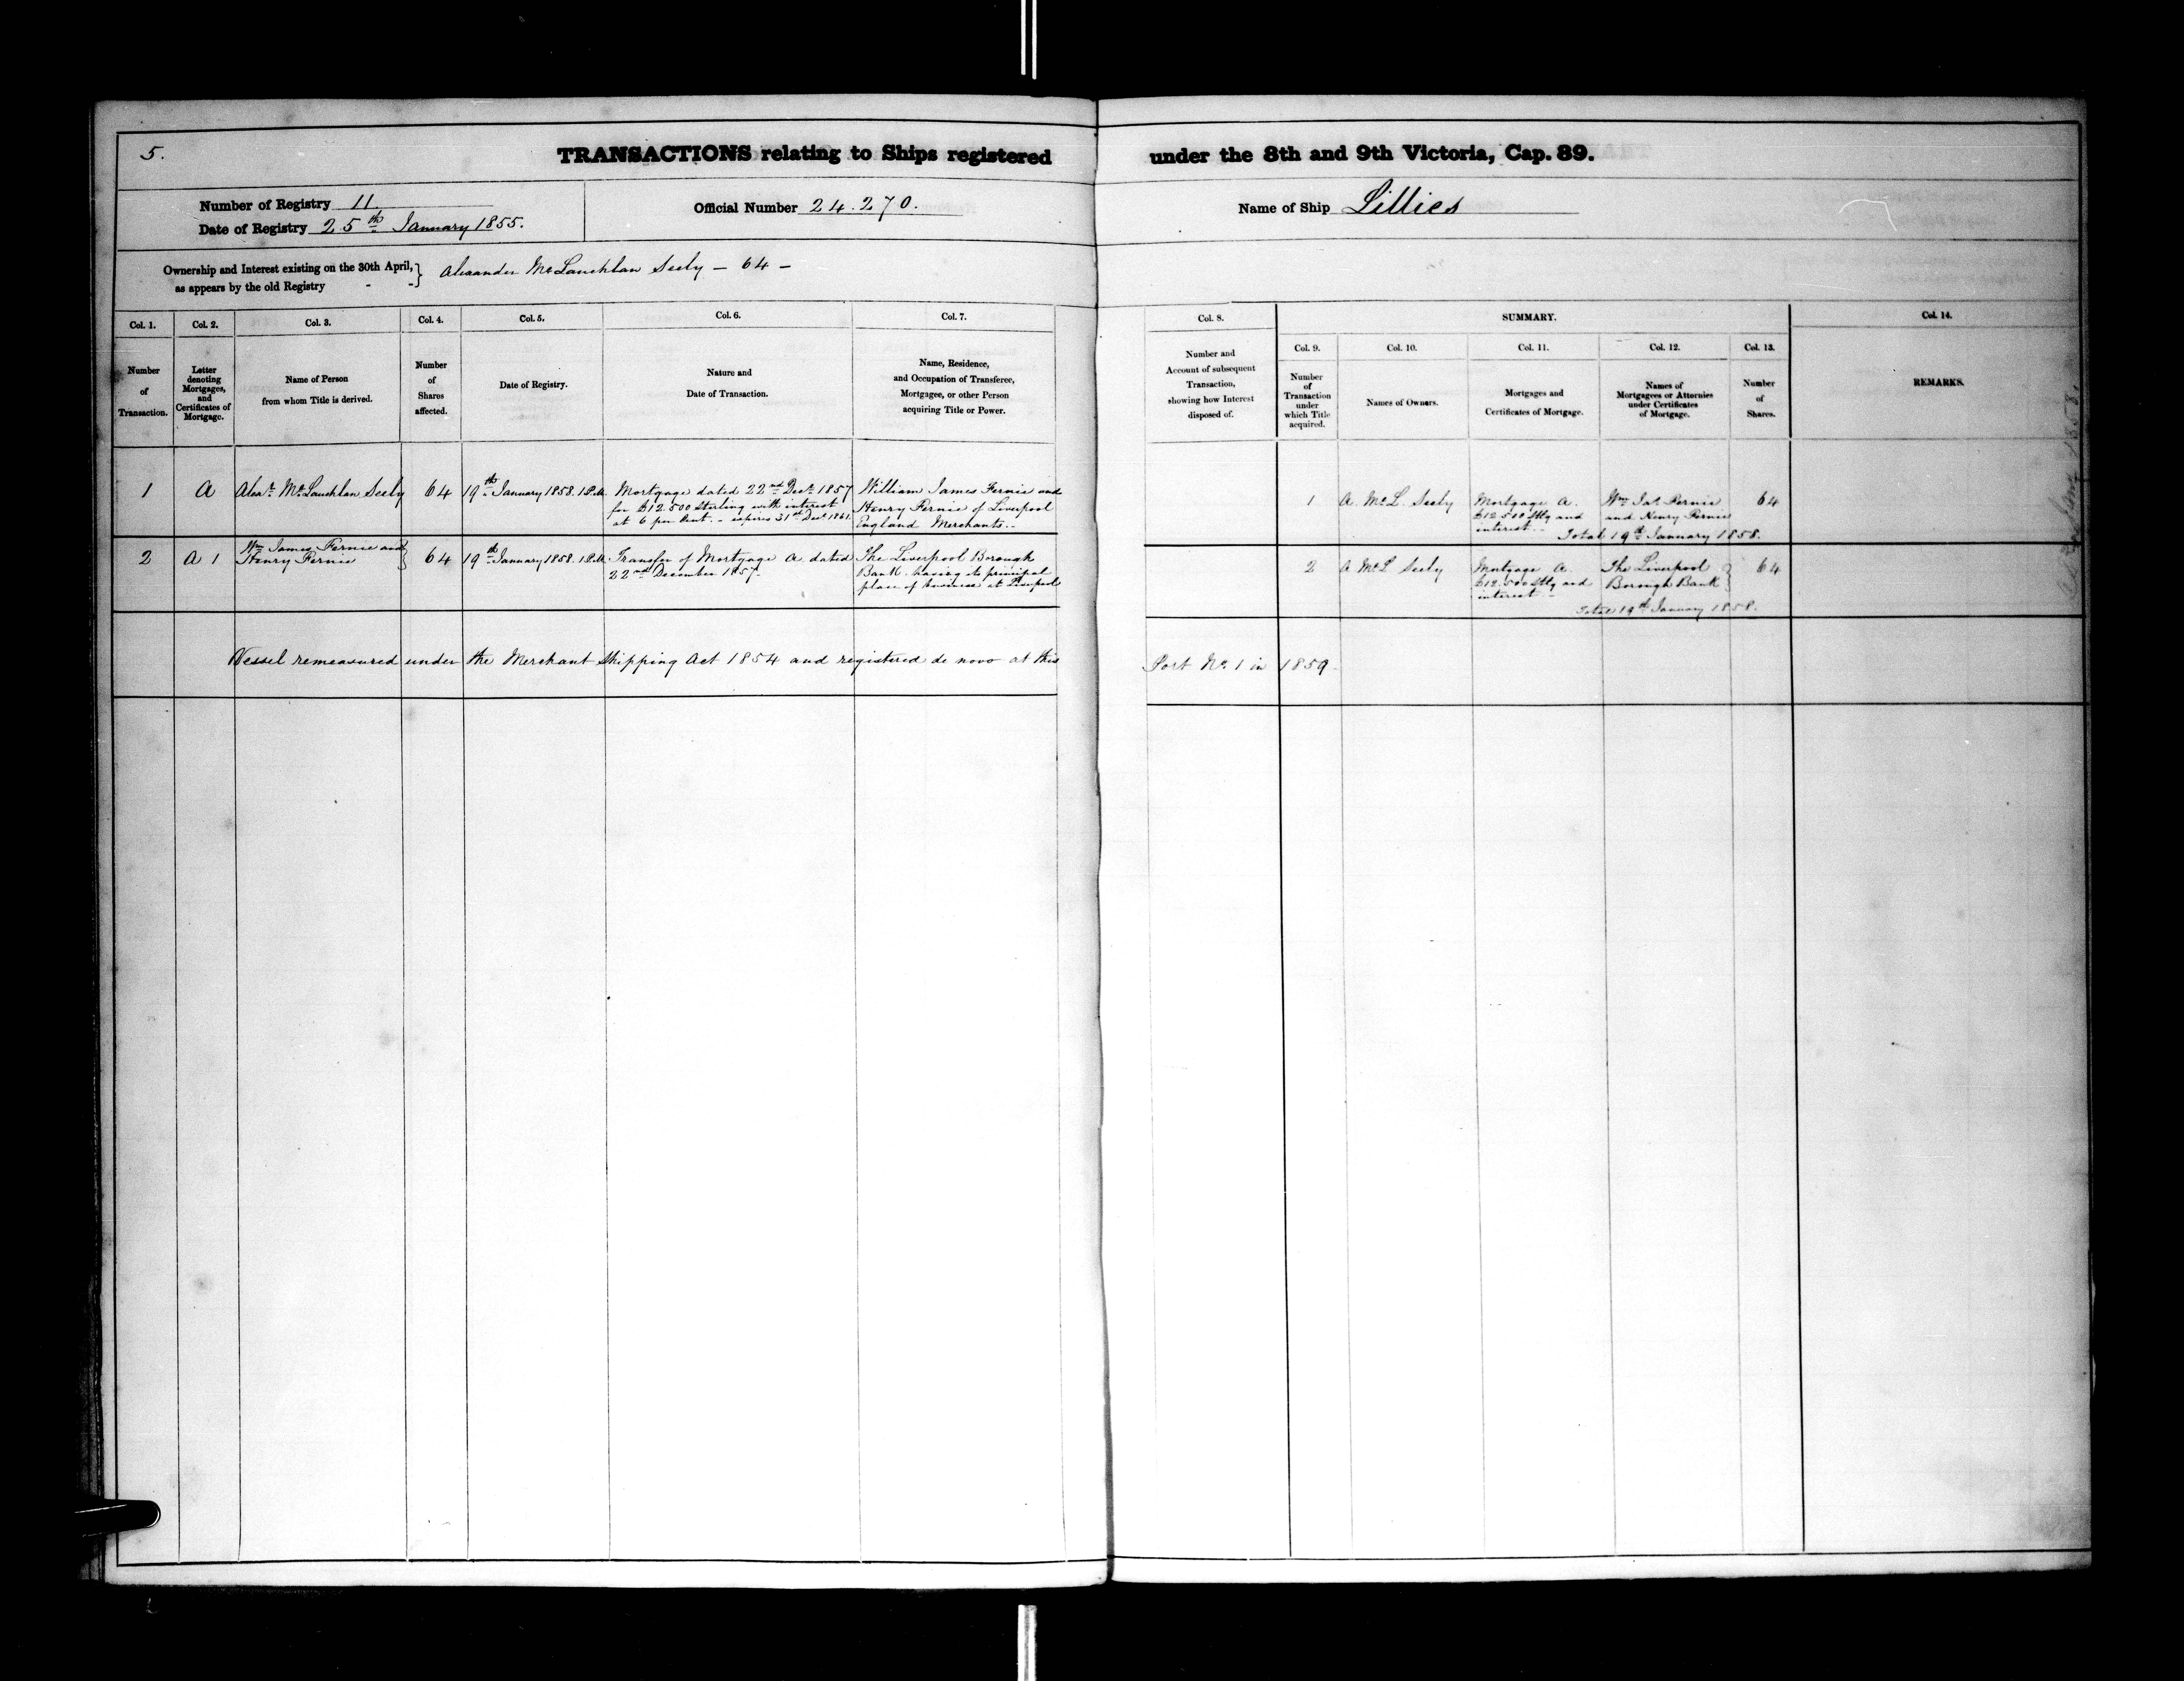 5.
TRANSACTIONS relating to Ships registered under the 8th and 9th Victoria, Cap. 89.
Number of Registry 11
Date of Registry 25th January 1855.
Official Number 24.270.
Name of Ship Lillies
Ownership and Interest existing on the 30th April, } Alexander McLauchlan Seely — 64 —
as appears by the old Registry - -
Col. 1.
Number
of
Transaction.
Col. 2.
Letter
denoting
Mortgages,
and
Certificates of
Mortgage.
Col. 3.
Name of Person
from whom Title is derived.
Col. 4.
Number
of
Shares
affected.
Col. 5.
Date of Registry.
Col. 6.
Nature and
Date of Transaction.
Col. 7.
Name, Residence,
and Occupation of Transferee,
Mortgagee, or other Person
acquiring Title or Power.
Col. 8.
Number and
Account of subsequent
Transaction,
showing how Interest
disposed of.
SUMMARY.
Col. 9.
Number
of
Transaction
under
which Title
acquired.
Col. 10.
Names of Owners.
Col. 11.
Mortgages and
Certificates of Mortgage.
Col. 12.
Names of
Mortgagees or Attornies
under Certificates
of Mortgage.
Col. 13.
Number
of
Shares.
Col. 14.
REMARKS.
1
A
Alexr McLauchlan Seely
64
19th January 1858. 1 P.M.
Mortgage dated 22nd Decr 1857
for £12.500 Sterling with interest
at 6 per Cent. - expires 31st Decr 1861.
William James Fernie and
Henry Fernie of Liverpool
England Merchants..
1
A. McL. Seely
Mortgage A.
£12.500 Stlg and
interest..
Wm Jas Fernie
and Henry Fernie
64
Total 19th January 1858.
2
A 1
Wm James Fernie and }
Henry Fernie
64
19th January 1858. 1 P.M.
Transfer of Mortgage A dated
22nd December 1857.
The Liverpool Borough
Bank. having its principal
place of business at Liverpool
2
A McL Seely
Mortgage A.
£12.500 Stlg and
interest -
The Liverpool }
Borough Bank
64
Total 19th January 1858.
Vessel remeasured under the Merchant Shipping Act 1854 and registered de novo at this Port No. 1 in 1859.